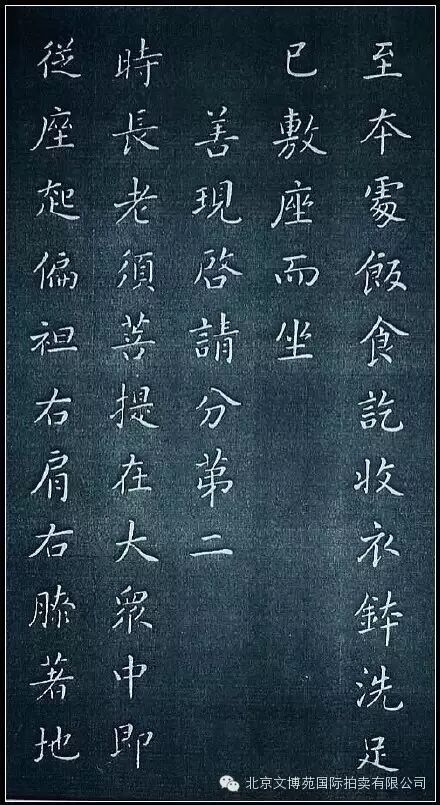 至本處飯食訖收衣鉢洗足
已敷座而坐
善現啓請分第二
時長老須菩提在大眾中即
從座起偏袒右肩右膝著地
北京文博苑国际拍卖有限公司